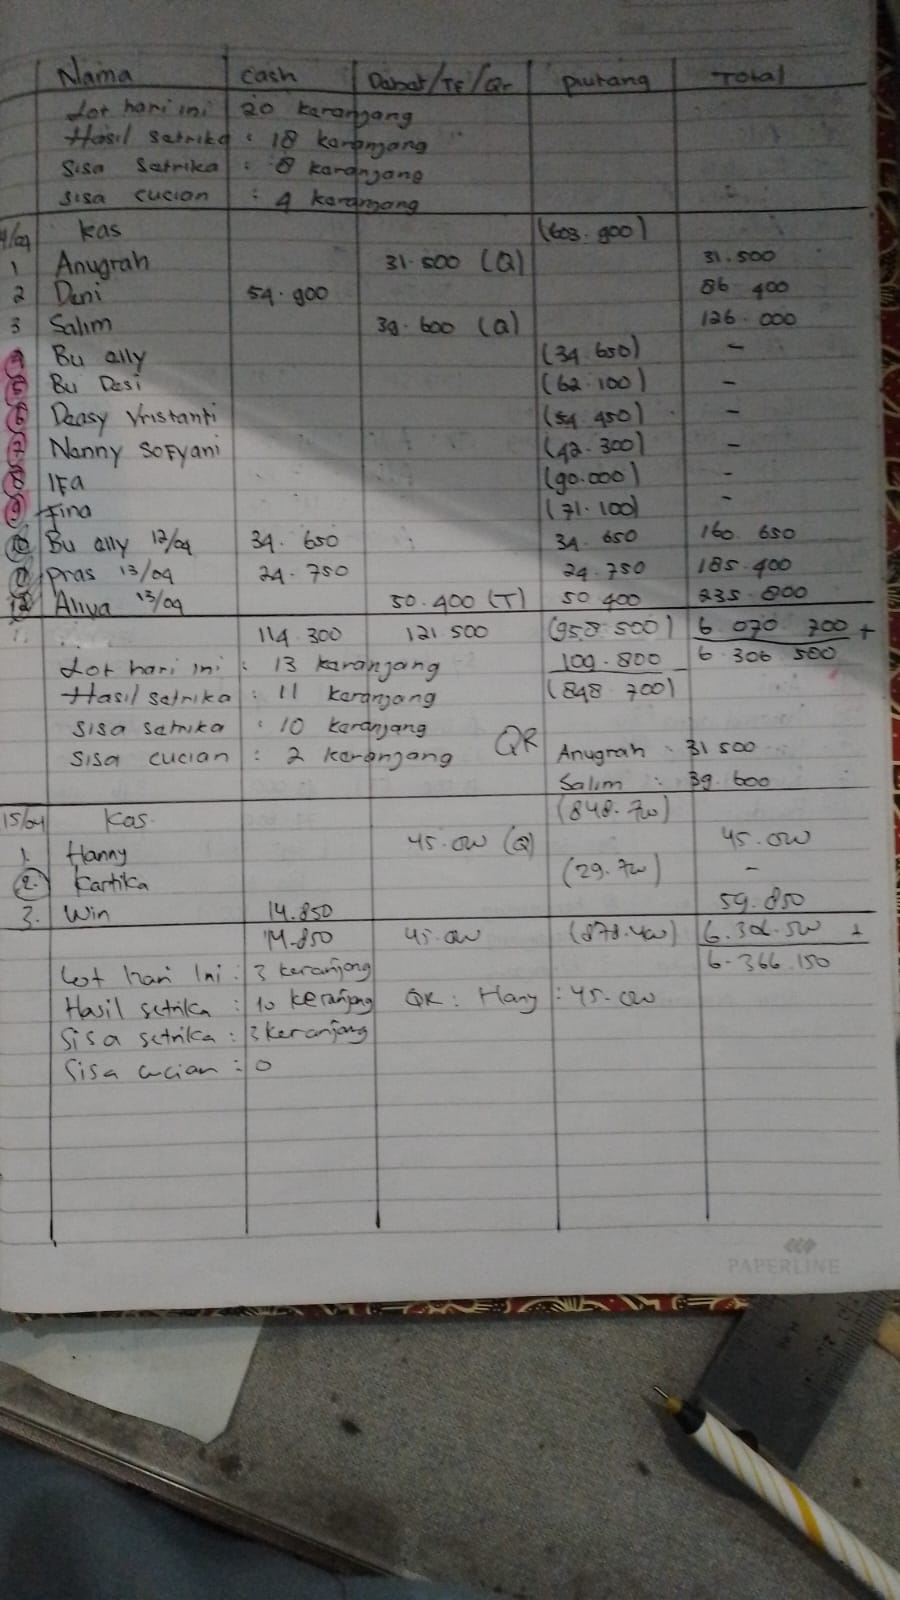 Nama Cash Debet/TF/Qr piutang Total
Lot hari ini 20 keranjang
Hasil setrika : 18 keranjang
Sisa Setrika : 8 keranjang
Sisa cucian : 4 keranjang
4/04 kas (603.900)
1 Anugrah 31.500 (Q) 31.500
2 Deni 54.900 86.400
3 Salim 39.600 (Q) 126.000
4 Bu ally (34.650) -
5 Bu Desi (62.100) -
6 Deasy Vristanti (54.450) -
7 Nanny Sofyani (42.300) -
8 IFa (90.000) -
9 Fina (71.100) -
10 Bu ally 12/04 34.650 34.650 160.650
11 pras 13/04 24.750 24.750 185.400
12 Aliya 13/04 50.400 (T) 50.400 235.800
114.300 121.500 (958.500) 6.070.700 +
Lot hari ini : 13 keranjang 109.800 6.306.500
Hasil setrika : 11 keranjang (848.700)
Sisa setrika : 10 keranjang
Sisa cucian : 2 keranjang QR Anugrah : 31.500
Salim : 39.600
15/04 Kas (848.700)
1. Hanny 45.000 (Q) 45.000
2. Kartika (29.700) -
3. Win 14.850 59.850
14.850 45.000 (878.400) 6.306.500 +
Lot hari Ini : 3 keranjang 6.366.150
Hasil setrika : 10 keranjang QR : Hany : 45.000
Sisa setrika : 3 keranjang
Sisa cucian : 0
PAPERLINE